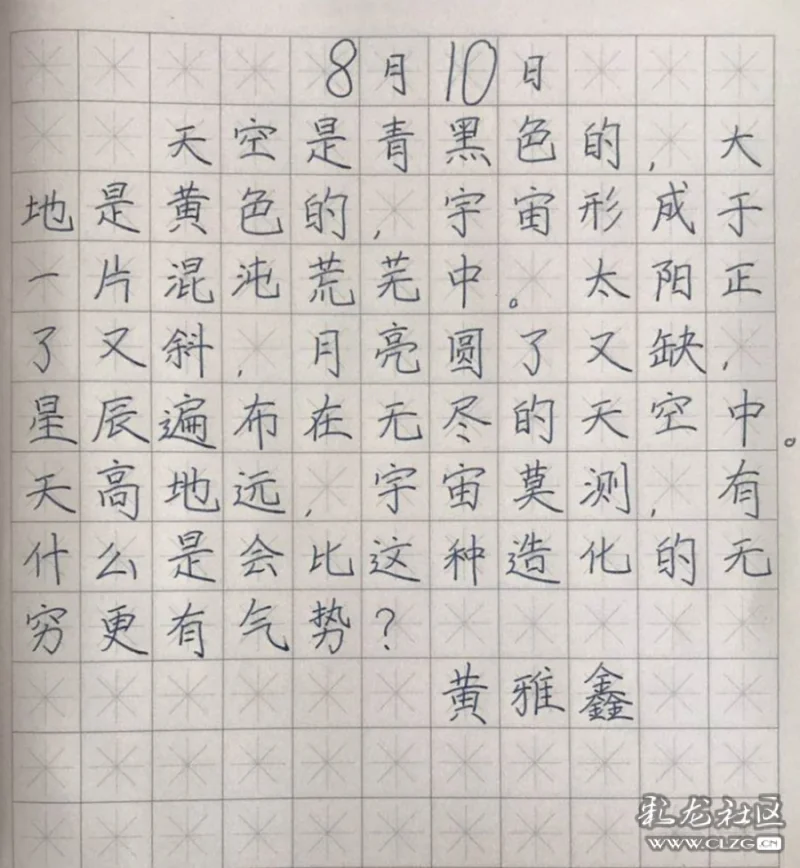 8月10日
天空是青黑色的，大
地是黄色的，宇宙形成于
一片混沌荒芜中。太阳正
了又斜，月亮圆了又缺，
星辰遍布在无尽的天空中。
天高地远，宇宙莫测，有
什么是会比这种造化的无
穷更有气势？
黄雅鑫
龙社区
WWW.CLZG.CN